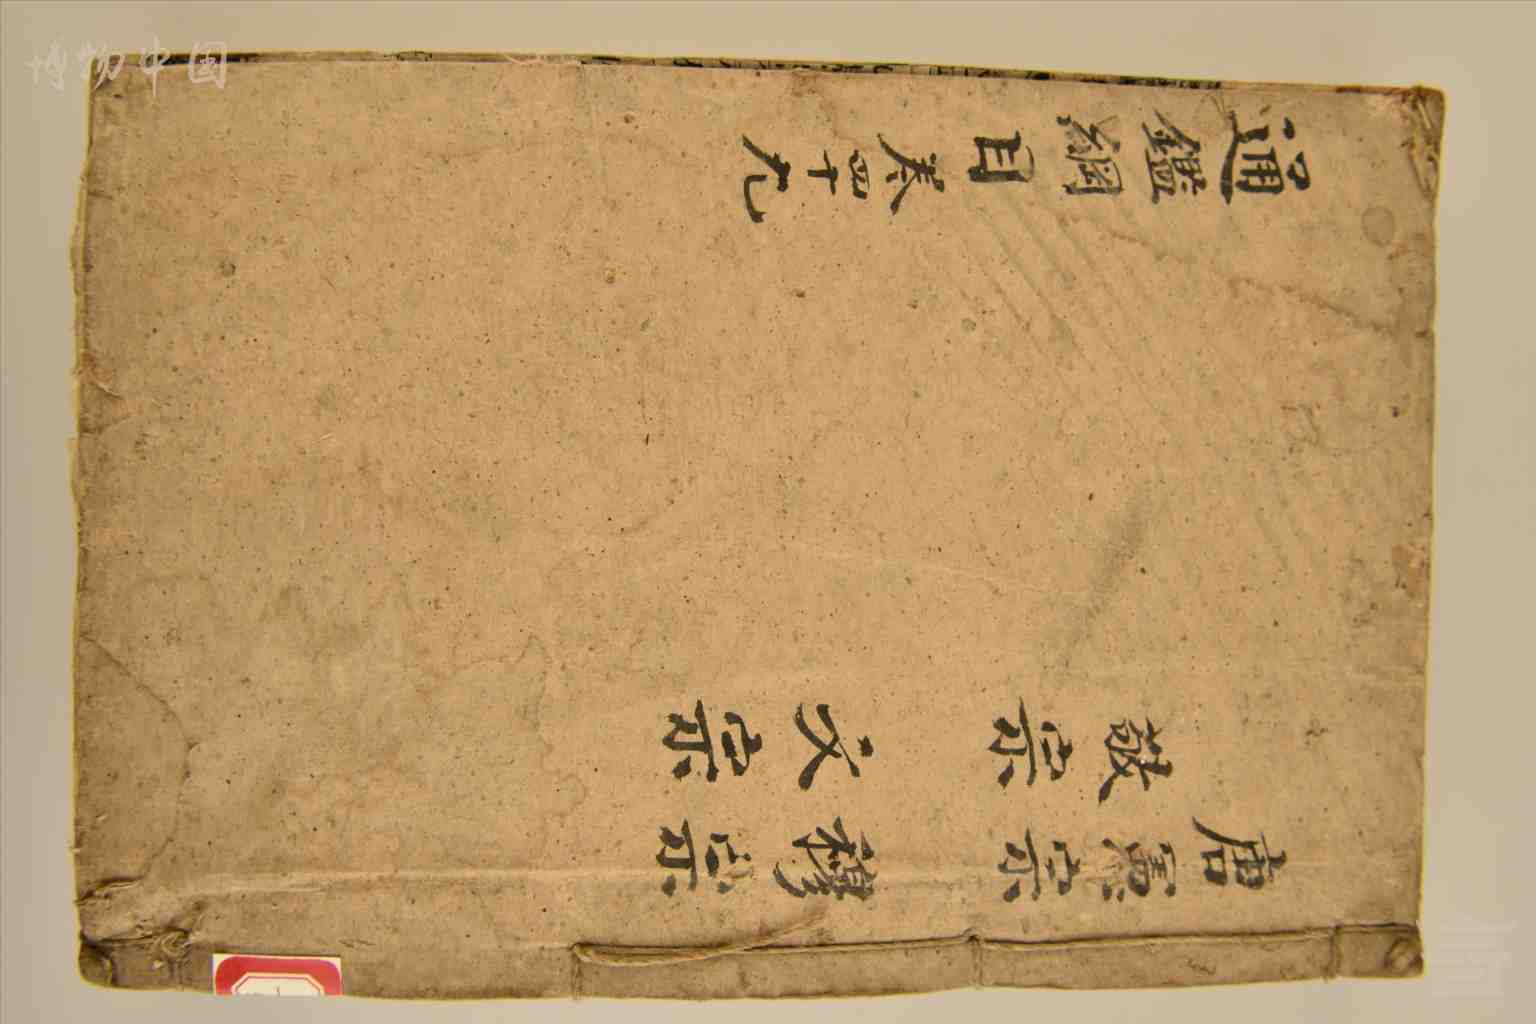 唐憲宗 穆宗
敬宗 文宗
通鑑綱目卷四十九
博物中国